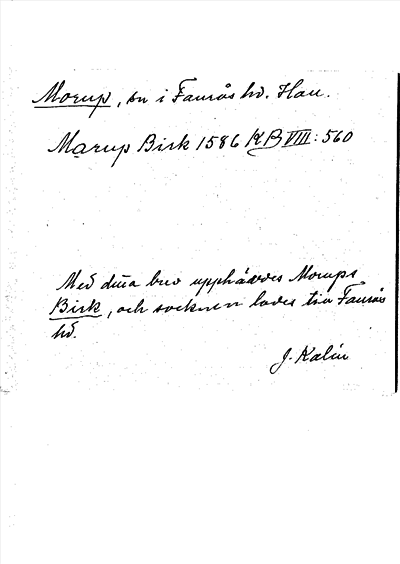 Morup, sn i Faurås hd. Hall.
Marup Birk 1586 KB VIII: 560
Med detta brev upphävdes Morups
Birk, och socknen lades till Faurås
hd.
J. Kalén